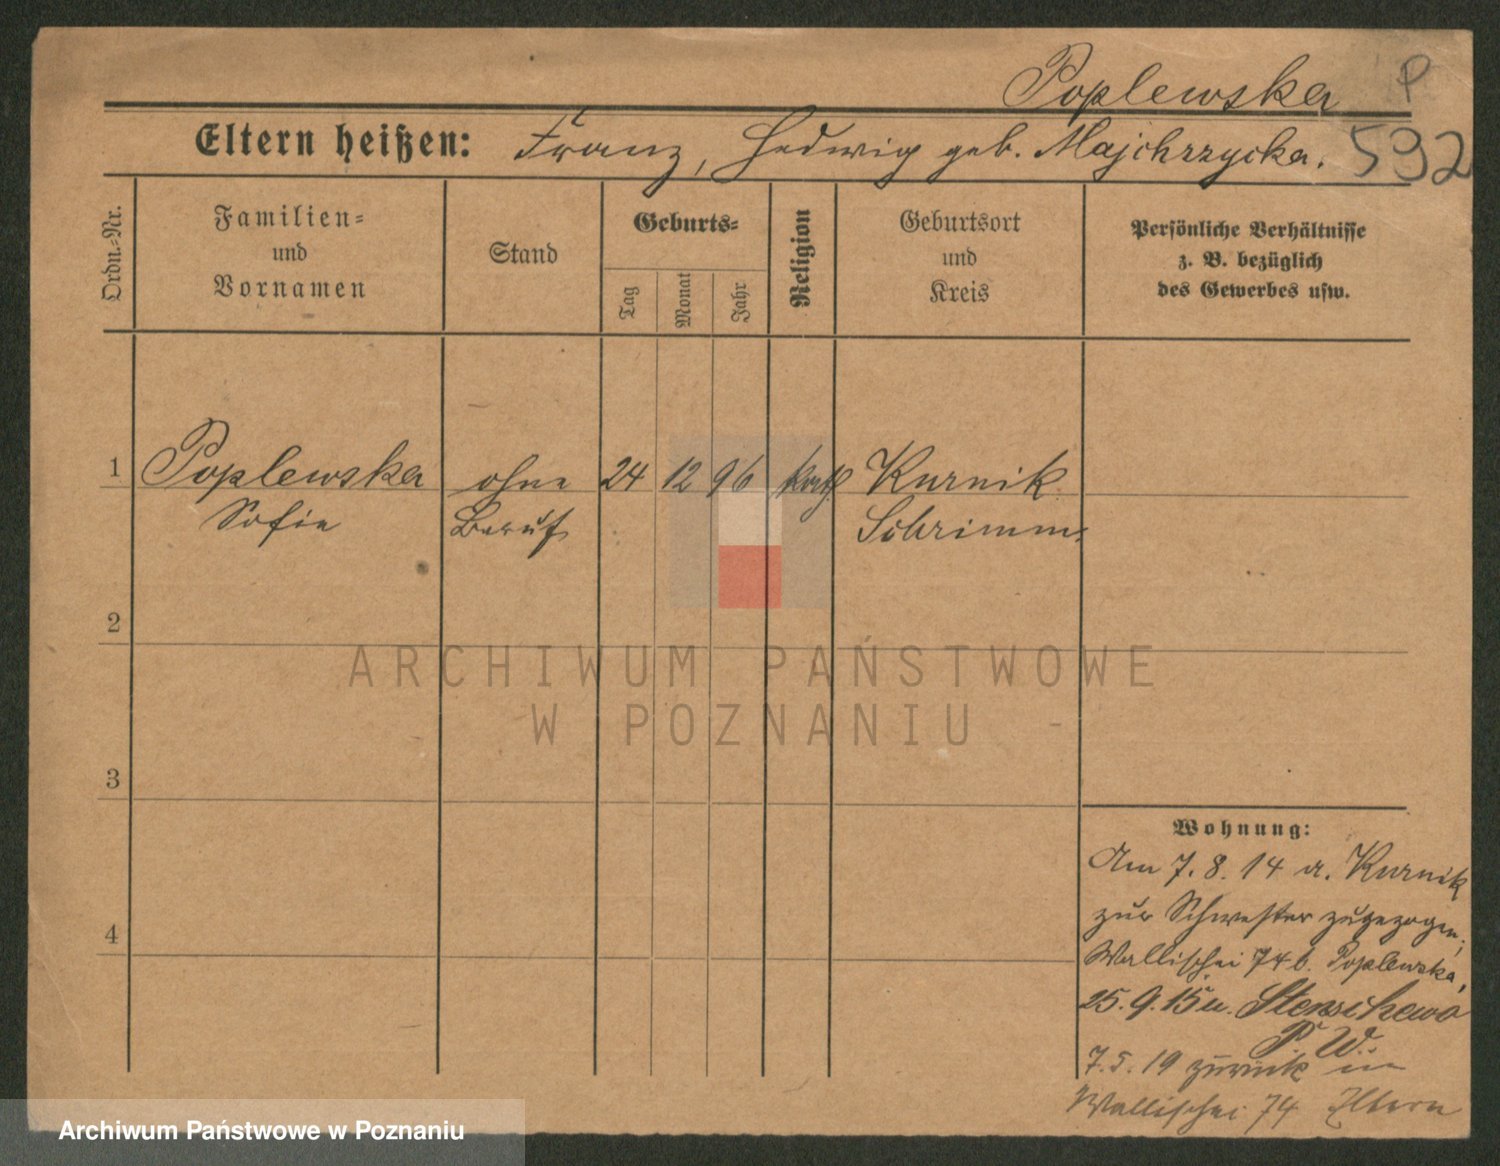 Poplewska P
Eltern heißen: Franz, Hedwig geb. Majchrzycka. 592
Ordn.=Nr.
Familien=
und
Vornamen
Stand
Geburts=
Tag
Monat
Jahr
Religion
Geburtsort
und
Kreis
Persönliche Verhältnisse
z. B. bezüglich
des Gewerbes usw.
1 Poplewska ohne 24 12 96 kath Kurnik
Sofie Beruf Schrimm.
2
ARCHIWUM PAŃSTWOWE
W POZNANIU
3
Wohnung:
Am 7. 8. 14 a. Kurnik
zur Schwester zugezogen,
4
Wallischei 74 b. Poplewska,
25. 9. 15 n. Stenschewo
P. W.
7. 5. 19 zurück in
Wallischei 74 Eltern
Archiwum Państwowe w Poznaniu